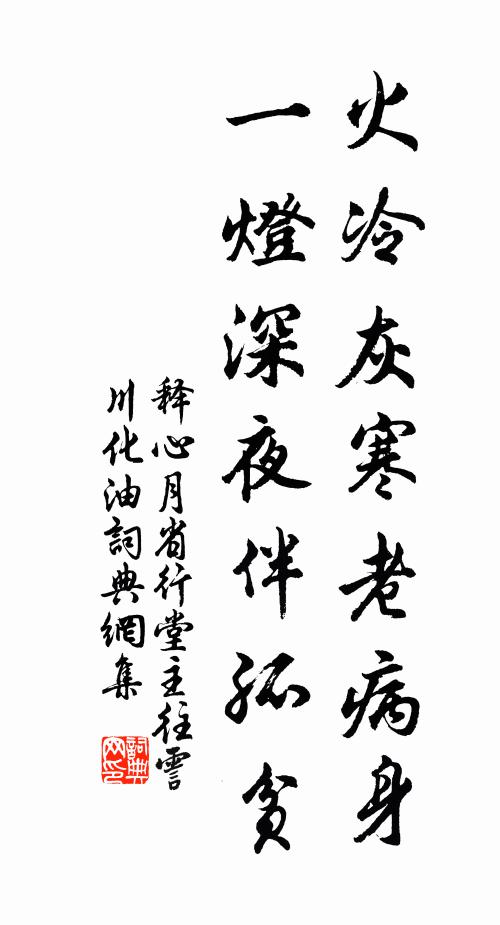 火冷灰寒老病身
一燈深夜伴孤貧
释心月省行堂主往霅
川化油詞典網集
詞典
网印